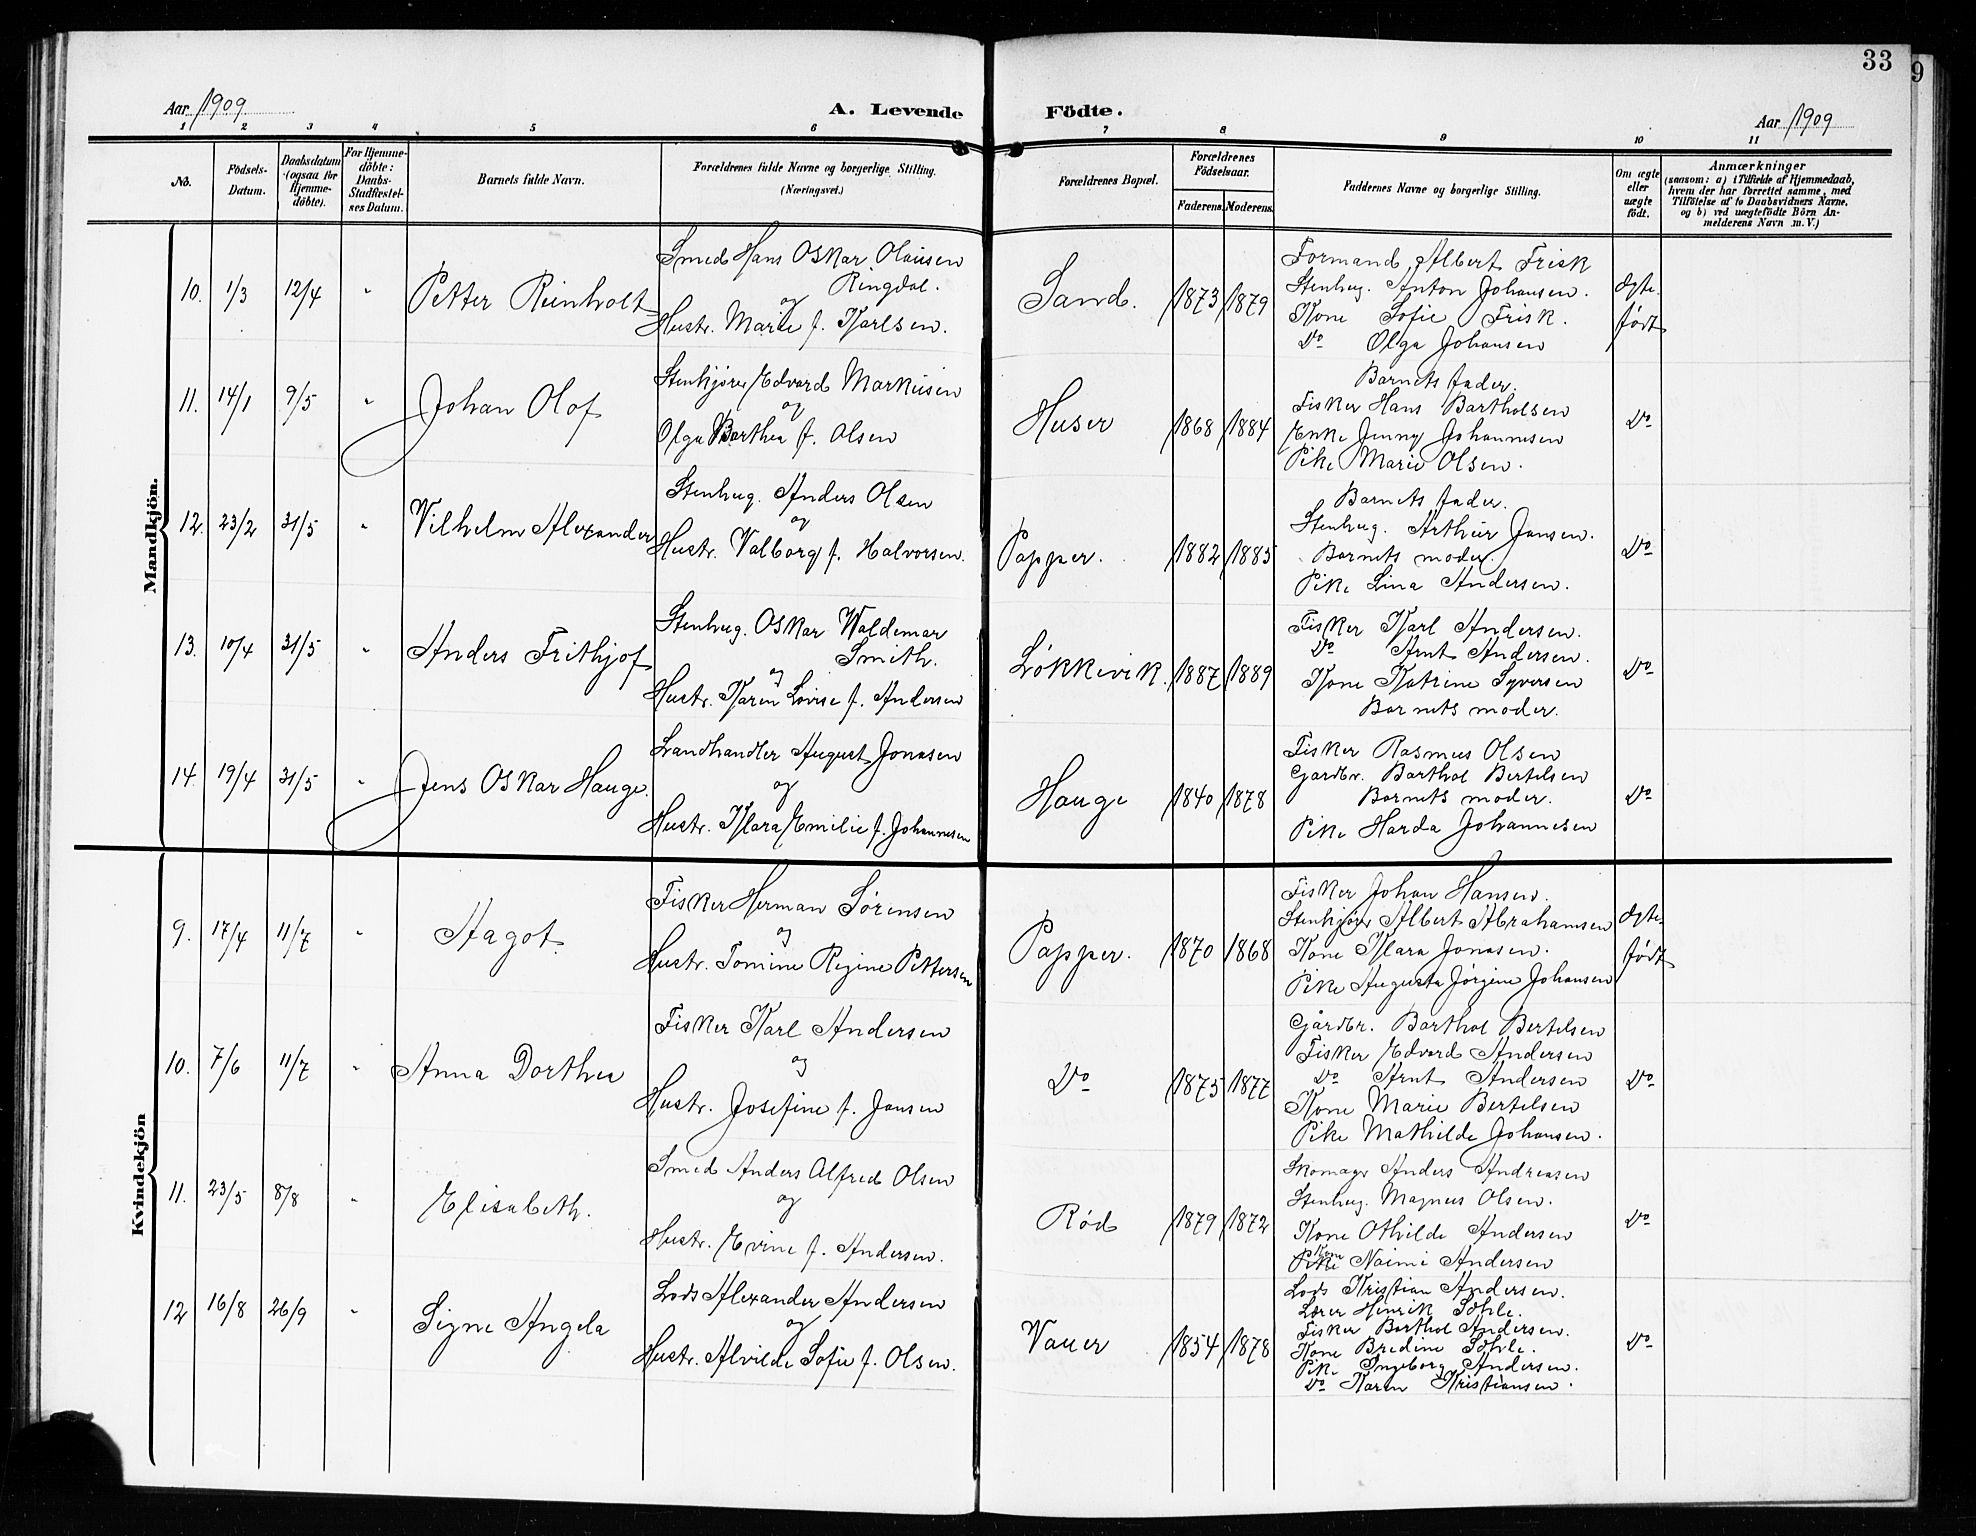 33
9
Aar 1909
A. Levende
Födte.
Aar 1909
1 2 3 4 5 6 7 8 9 10 11
No.
Födsels-
Datum.
Daabsdatum
(ogsaa for
Hjemme-
döbte).
For Hjemme-
döbte:
Daabs-
Stadfæstel-
ses Datum.
Barnets fulde Navn.
Forældrenes fulde Navne og borgerlige Stilling.
(Næringsvei.)
Forældrenes Bopæl.
Forældrenes
Födselsaar.
Faderens. Moderens.
Faddernes Navne og borgerlige Stilling.
Om ægte
eller
uægte
födt.
Anmærkninger
(saasom: a) i Tilfælde af Hjemmedaab,
hvem der har forrettet samme, med
Tilföielse af to Daabsvidners Navne.
og b) ved uægtefödte Börn An-
melderens Navn m. V.)
Mandkjön.
10. 1/3 12/4 " Petter Reinholt
Smed Hans Oskar Olausen
Ringdal.
og
Hustr. Marie f. Karlsen.
Sand. 1873 1879
Formand Albert Frisk
Stenhug. Anton Johansen.
Kone Sofie Frisk.
Do Olga Johansen
ægte.
født
11. 14/1 9/5 " Johan Olof
Stenkjører Edvard Markusen
og
Olga Barthea f. Olsen
Huser 1868 1884
Barnets fader.
Fisker Hans Bartholsen
Enke Jenny Johannesen
Pike Marie Olsen.
Do
12. 23/2 31/5 " Vilhelm Alexander
Stenhug. Anders Olsen
og
Hustr. Valborg f. Halvorsen.
Papper. 1882 1885
Barnets fader.
Stenhug. Arthur Jansen.
Barnets moder.
Pike Lina Andersen.
Do
13. 10/4 31/5 " Anders Frithjof
Stenhug. Oskar Waldemar
Smith.
og
Hustr. Karen Lovise f. Andersen
Løkkevik. 1887 1889
Fisker Karl Andersen.
Do Arnt Andersen.
Kone Katrine Syversen
Barnets moder.
Do
14. 19/4 31/5 " Jens Oskar Hauge.
Landhandler August Jonasen
og
Hustr. Klara Emilie f. Johannesen
Hauge 1840 1878
Fisker Rasmus Olsen
Gardbr. Barthol Bertelsen
Barnets moder.
Pike Harda Johannesen
Do
Kvindekjön
9. 17/4 11/7 " Aagot.
Fisker Herman Sørensen
og
Hustr. Tomine Regine Pettersen
Papper. 1870 1868
Fisker Johan Hansen.
Stenkjører Albert Abrahamsen
Kone Klara Jonasen.
Pike Augusta Jørgine Johansen
ægte.
født
10. 7/6 11/7 " Anna Dorthea
Fisker Karl Andersen
og
Hustr. Josefine f. Jansen
Do 1875 1877
Gårdbr. Barthol Bertelsen
Fisker Edvard Andersen
Do Arnt Andersen
Kone Marie Bertelsen
Pike Mathilde Johansen.
Do
11. 23/5 8/8 " Elisabeth.
Smed Anders Alfred Olsen
og
Hustr. Evine f. Andersen.
Rød 1879 1872
Skomagr Anders Andreasen
Stenhug. Magnus Olsen.
Kone Othilde Andersen
Kone
Pike Naimi Andersen
Do
12 16/8 26/9 " Signe Angela
Lods Alexander Andersen
og
Hustr. Alvilde Sofie f. Olsen.
Vauer 1854 1878
Lods Kristian Andersen.
Lærer Henrik Søhle.
Fisker Barthol Andersen.
Kone Bredine Søhle.
Pike Ingeborg Andersen.
Do Karen Kristiansen.
Do